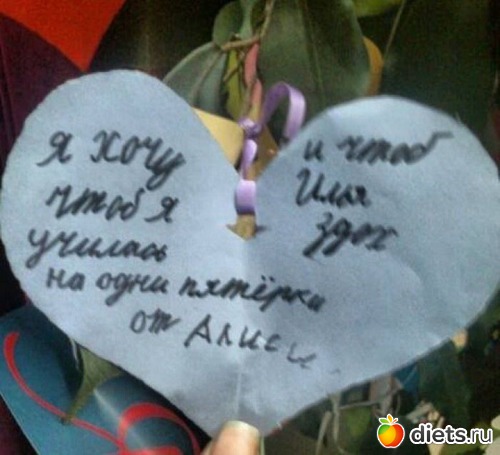 я хочу
чтоб я
училась
на одни пятёрки
от Алисы.
и чтоб
Илья
здох
diets.ru